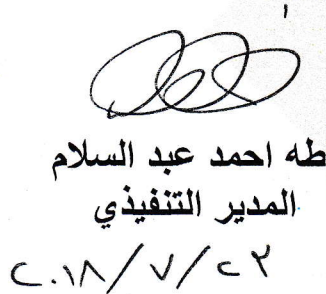 طه احمد عبد السلام
المدير التنفيذي
٢٠١٨/٧/٢٣